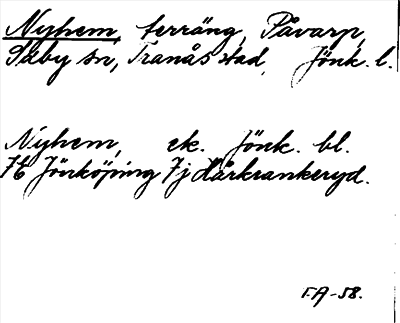 Nyhem, terräng, Påvarp,
Säby sn, Tranås stad, Jönk. l.
Nyhem, ek. Jönk. bl.
7E Jönköping 7j Hårkrankeryd.
F.A-58.